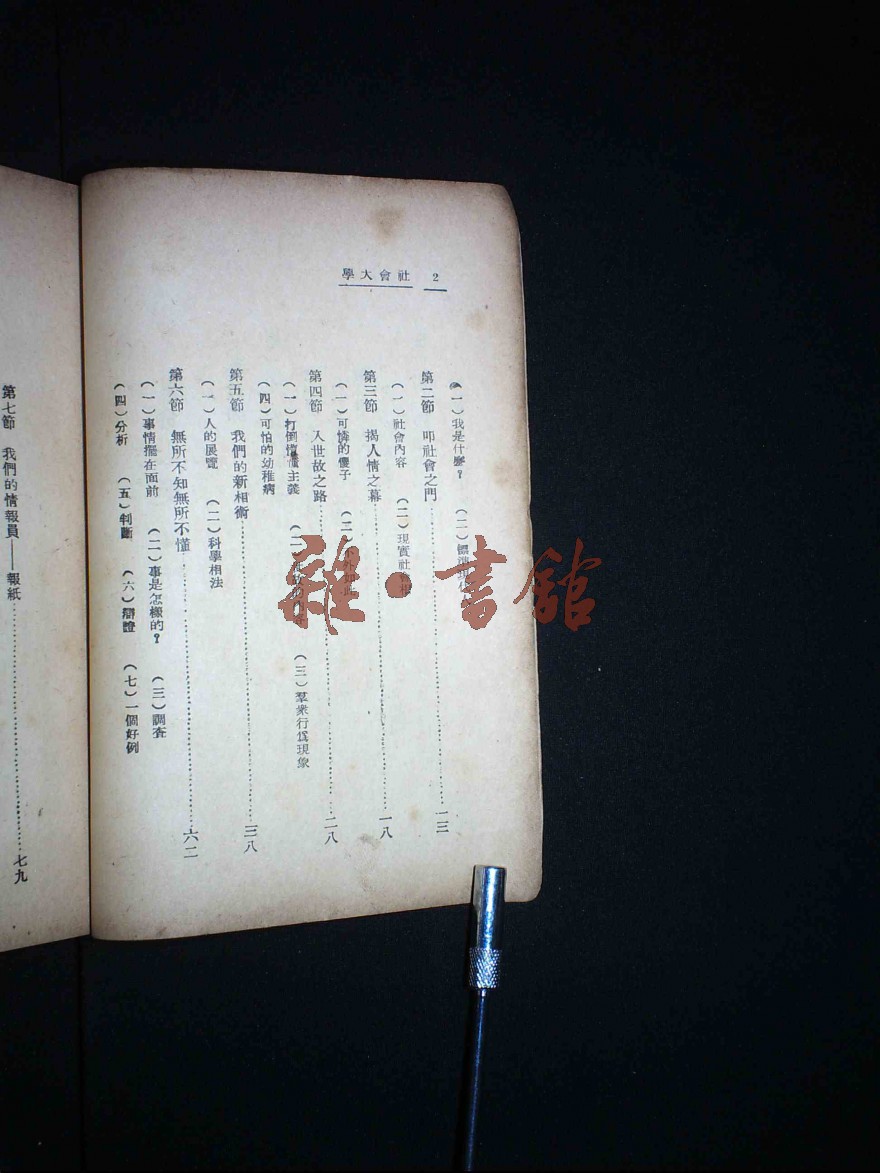 社會大學 2
(一)我是什麼? (二)
第二節 叩社會之門 一三
(一)社會內容 (二)現實社會相
第三節 揭人情之幕 一八
(一)可憐的傻子 (二)
第四節 入世故之路 二八
(一)打倒懵懂主義 (二) (三)羣衆行爲現象
(四)可怕的幼稚病
第五節 我們的新相術 三八
(一)人的展覽 (二)科學相法
第六節 無所不知無所不懂 六二
(一)事情擺在面前 (二)事是怎樣的? (三)調查
(四)分析 (五)判斷 (六)辯證 (七)一個好例
第七節 我們的情報員——報紙 七九
雜·書舘